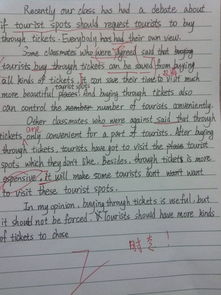 Recently our class has had a debate about
if tourist spots should request tourists to buy
through tickets. Everybody has had their own view.
Some classmates who were agreed said that buying
tourists buy through tickets can be saved from buying
all kinds of tickets. It can save their time to visit much
tourist spots
more beautiful places and buying through tickets also
can control the member number of tourists conveniently.
Other classmates who were against said that through
are
tickets only convenient for a part of tourists. After buying
through tickets, tourists have got to visit the place tourist
spots which they don't like. Besides, through tickets is more
expensive. It will make some tourists don't want want
to visit these tourist spots.
In my opinion, buying through tickets is useful, but
it should not be forced. Tourists should have more kinds
of tickets to chose
时态!